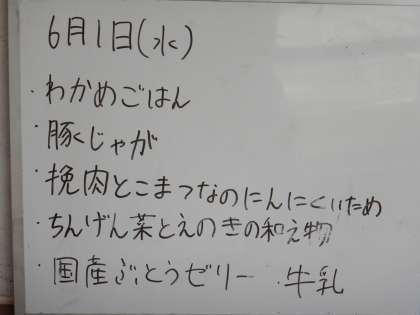 6月1日(水)
・わかめごはん
・豚じゃが
・挽肉とこまつなのにんにくいため
・ちんげん菜とえのきの和え物
・国産ぶどうゼリー ・牛乳